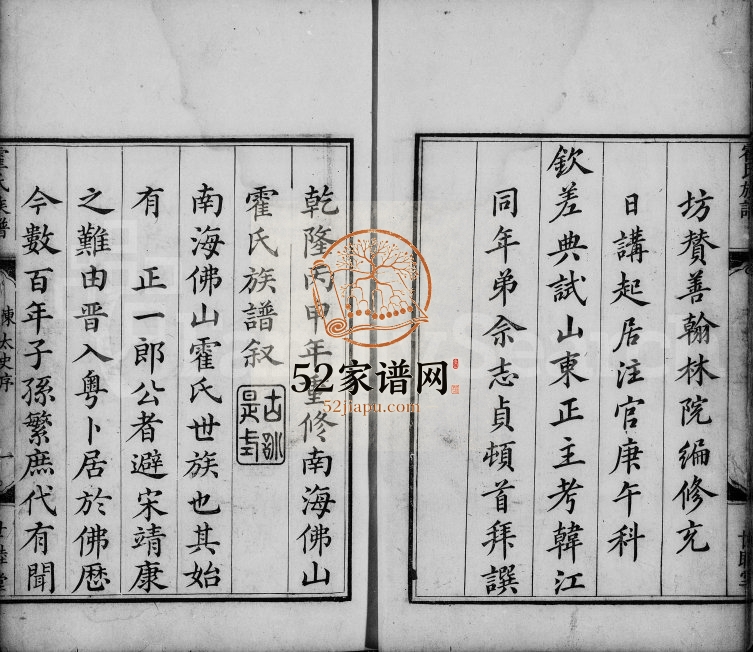 坊贊善翰林院編修充
日講起居注官庚午科
欽差典試山東正主考韓江
同年弟佘志貞頓首拜譔
乾隆丙申年重修南海佛山
霍氏族譜叙
南海佛山霍氏世族也其始
有 正一郎公者避宋靖康
之難由晋入粤卜居於佛歴
今數百年子孫繁庶代有聞
霍氏族譜
陳太史序
一
52家谱网
52jiapu.com